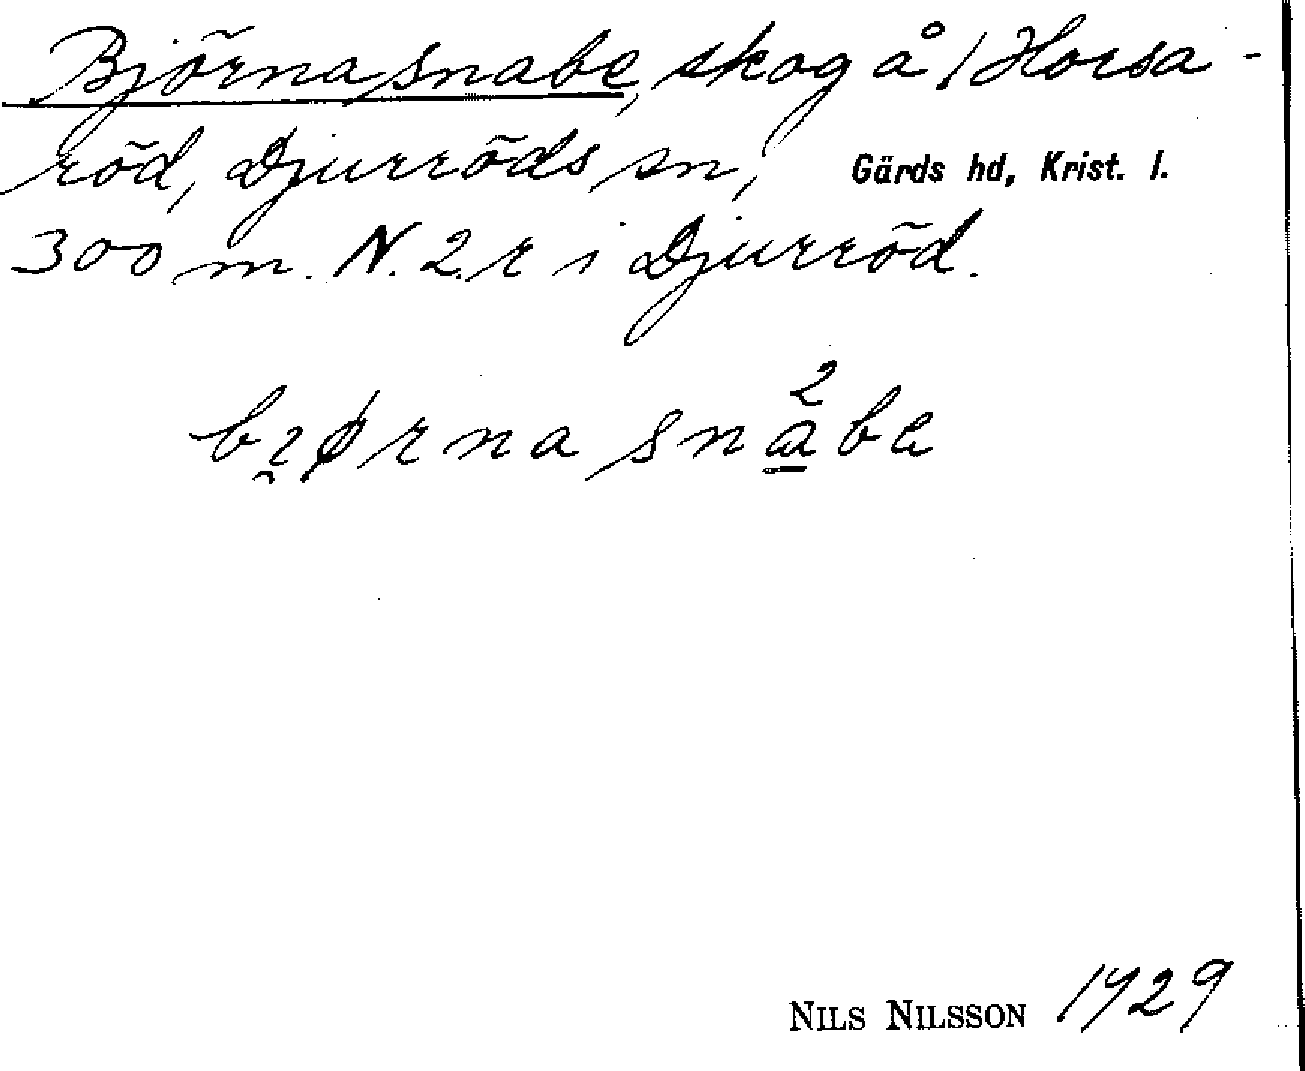 Björnasnabe, skog å 1 Horsa-
röd, Djurröds sn, Gärds hd, Krist. l.
300 m. N. 2. r i Djurröd.
bɪ̯ørnasnɑ̲²be
NILS NILSSON 1929